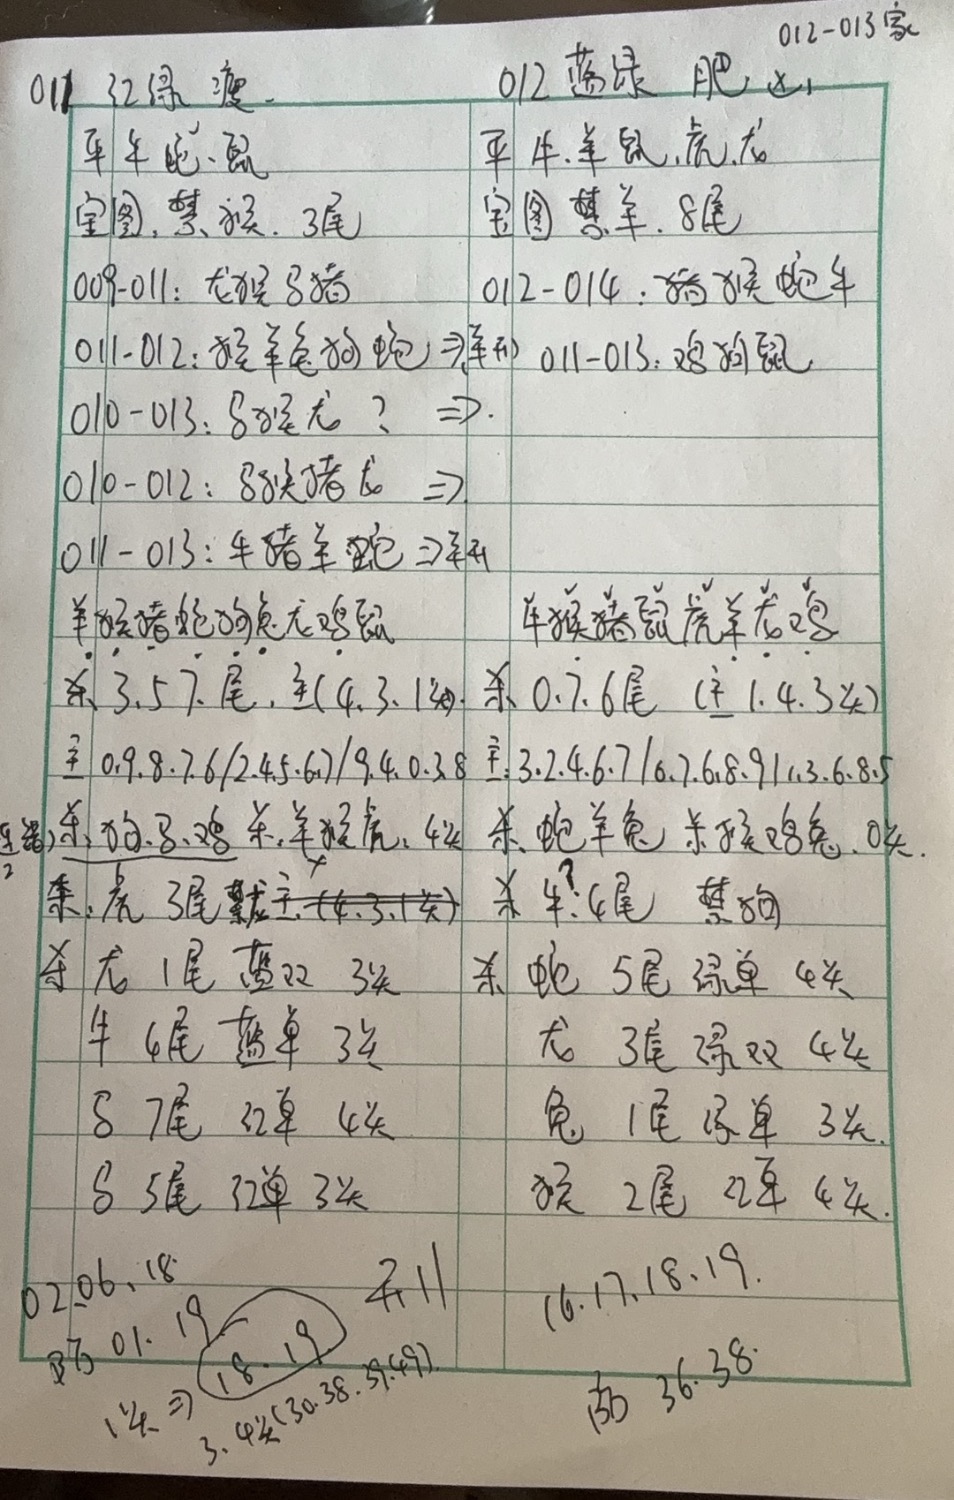 012-013家
011 红绿 瘦
平 羊 蛇、鼠
宝图、禁、猴. 3尾
009-011: 龙猴马猪
011-012: 猴羊兔狗蛇⇒
010-013: 马猴龙 ? ⇒.
010-012: 马猴猪龙 ⇒
011-013: 牛猪羊蛇⇒
羊猴猪蛇狗兔龙鸡鼠
杀 3.5.7.尾. 主(4.3.1头)
主 0.9.8.7.6/2.4.5.6.7/9.4.0.3.8
杀、狗.马.鸡 杀.羊猴虎、4头
杀: 虎 3尾 禁龙主 (4.3.1头)
杀 龙 1尾 蓝双 3头
牛 4尾 蓝单 3头
马 7尾 红单 4头
马 5尾 红单 3头
02.06.18
防 01. 19
1头⇒ 18.19
3.4头(30.38.39.49)
012 蓝绿 肥
平 牛.羊 鼠.虎.龙
宝图 禁羊. 8尾
012-014: 猪猴蛇牛
011-013: 鸡狗鼠
牛猴猪鼠虎羊龙鸡
杀 0.7.6尾 (主 1.4.3头)
主:3.2.4.6.7/0.7.6.8.9/1.3.6.8.5
杀、蛇羊兔 杀猴鸡兔、0头.
杀 牛?:4尾 禁狗
杀 蛇 5尾 绿单 4头
龙 3尾 绿双 4头
兔 1尾 绿单 3头.
猴 2尾 红单 4头.
16.17.18.19.
防 36.38.